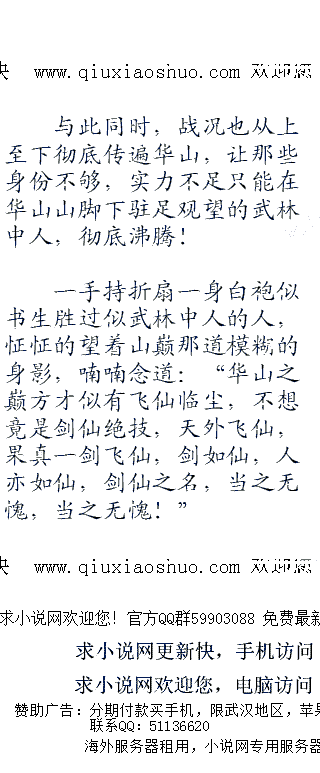 快 www.qiuxiaoshuo.com 欢迎您
与此同时，战况也从上
至下彻底传遍华山，让那些
身份不够，实力不足只能在
华山山脚下驻足观望的武林
中人，彻底沸腾！
一手持折扇一身白袍似
书生胜过似武林中人的人，
怔怔的望着山巅那道模糊的
身影，喃喃念道：“华山之
巅方才似有飞仙临尘，不想
竟是剑仙绝技，天外飞仙，
果真一剑飞仙，剑如仙，人
亦如仙，剑仙之名，当之无
愧，当之无愧！”
快 www.qiuxiaoshuo.com 欢迎您
求小说网欢迎您！官方QQ群59903088 免费最新
求小说网更新快，手机访问
求小说网欢迎您，电脑访问
赞助广告：分期付款买手机，限武汉地区，苹果
联系QQ：51136620
海外服务器租用，小说网专用服务器